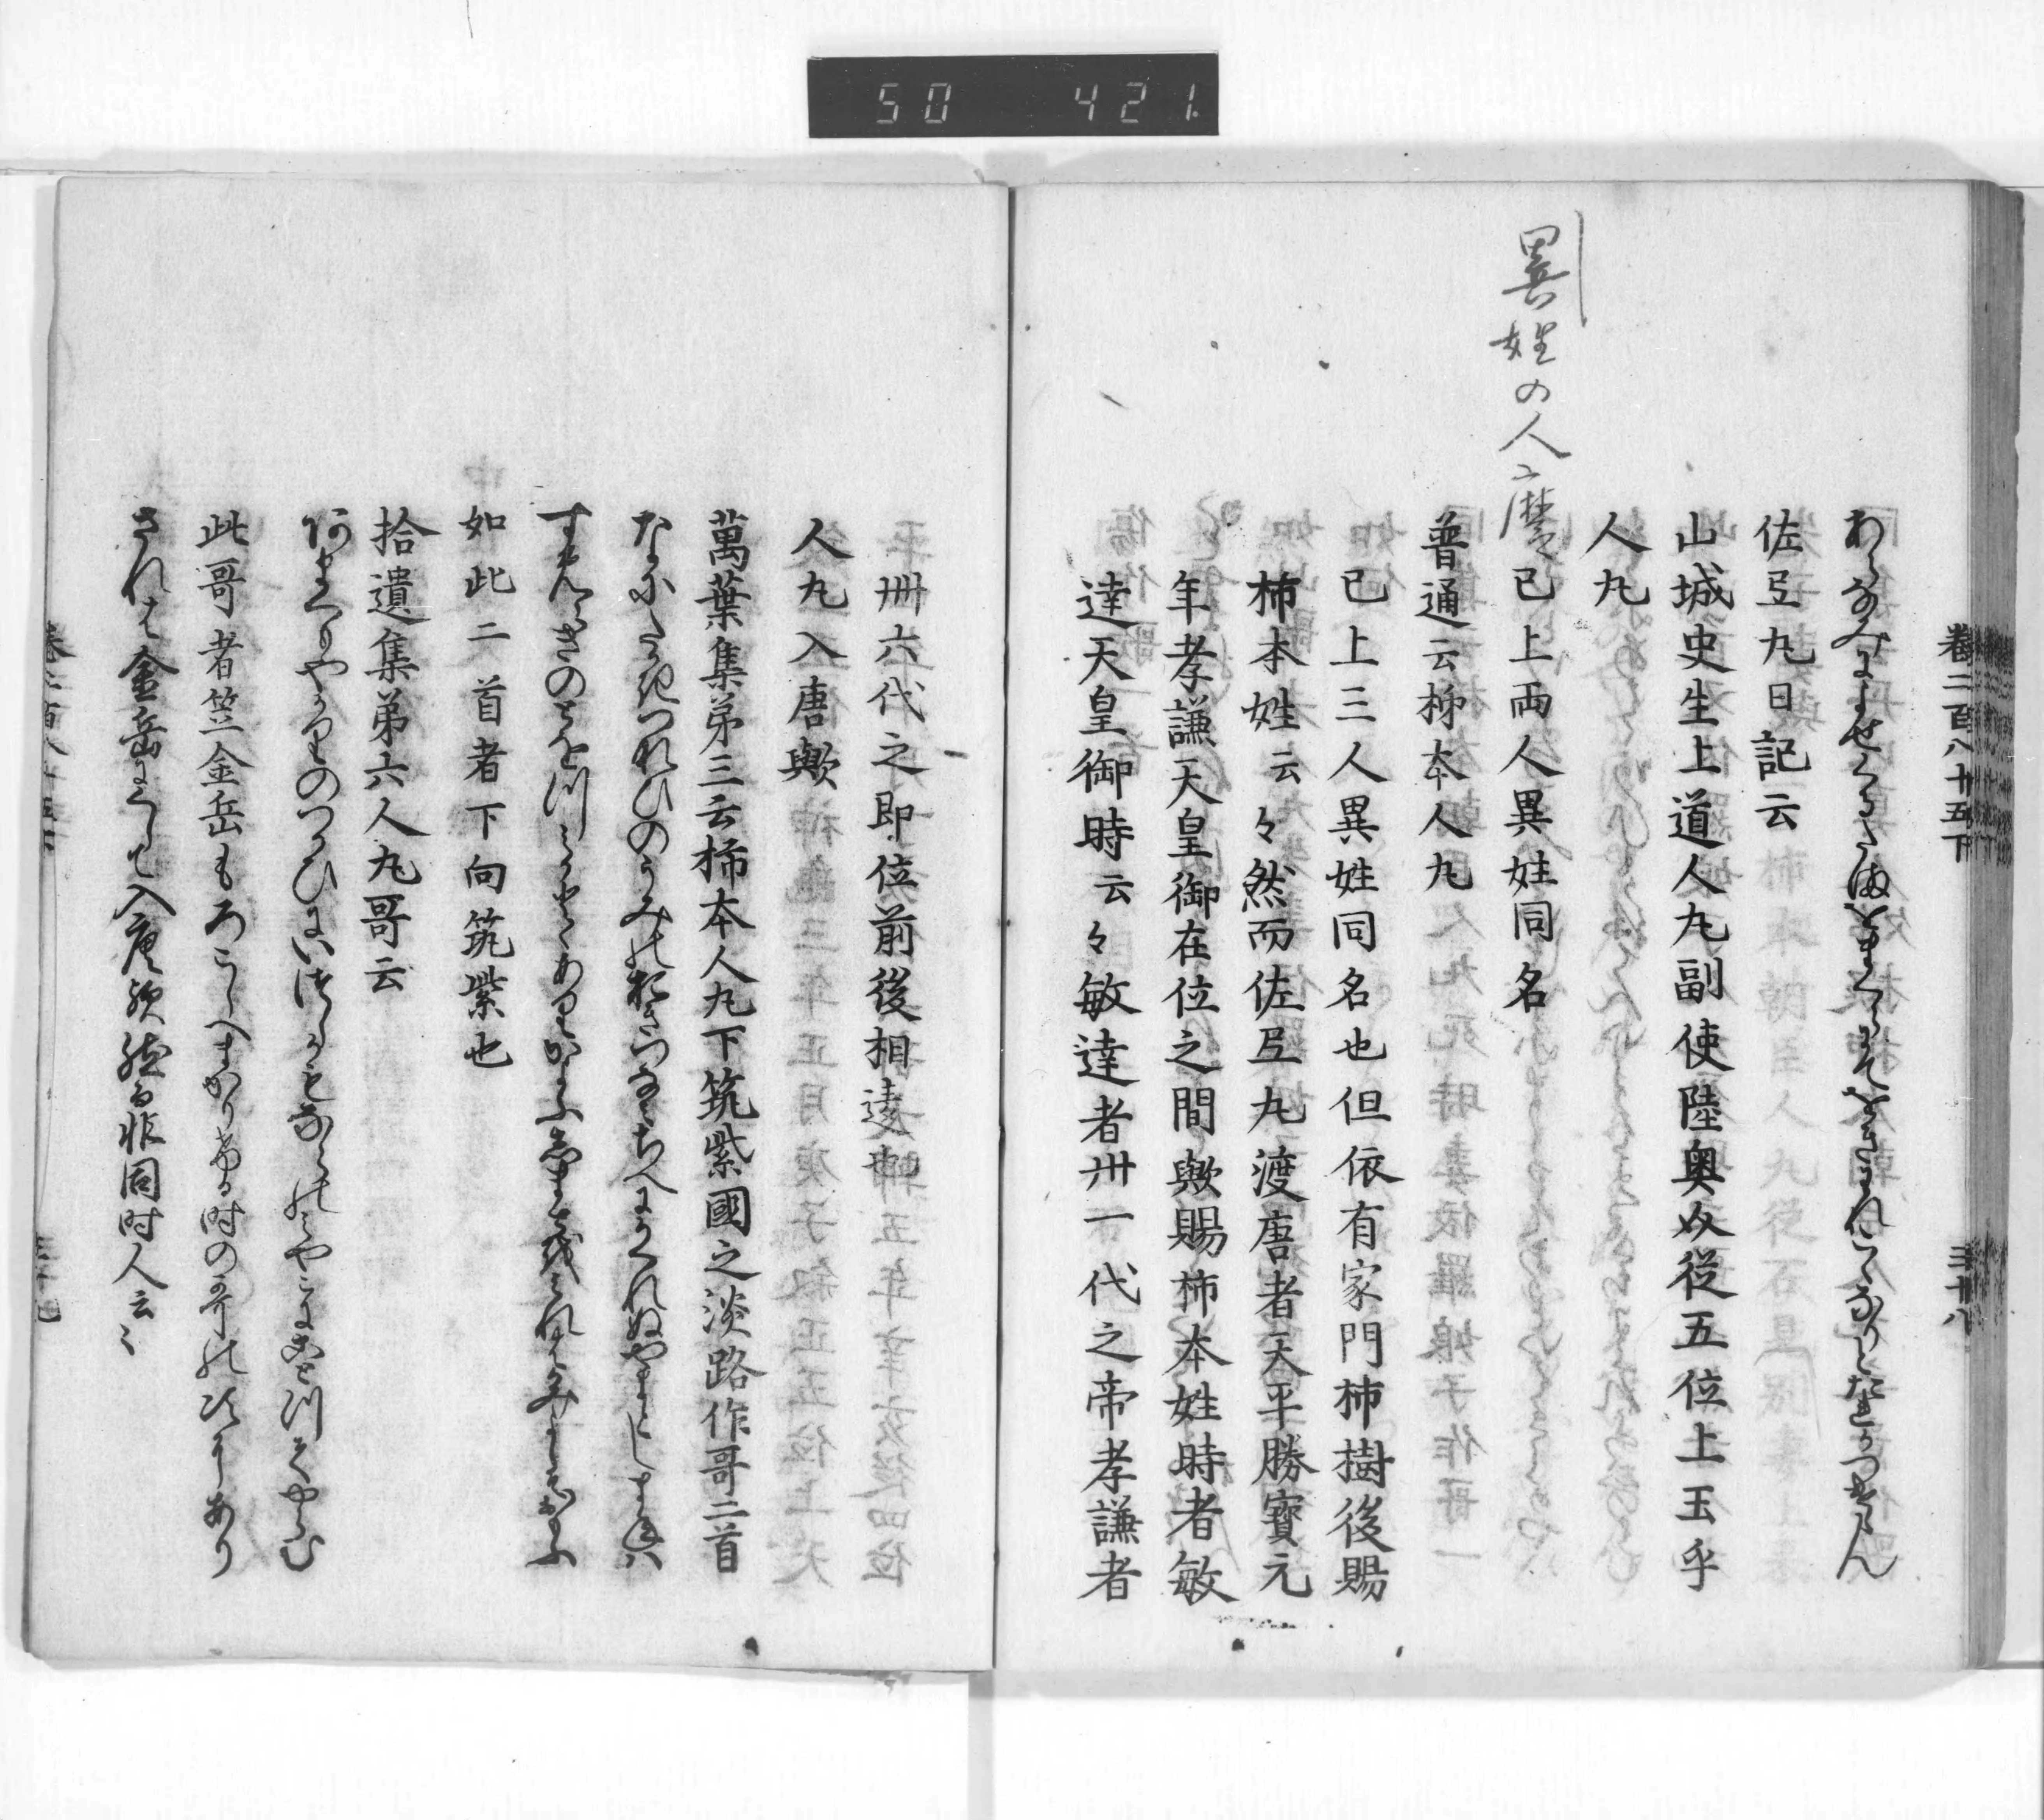 50 421
卷二百八十五下
三十八
あらなみによせくるたまをまくらにおきわれこゝなりとたれかつけけん
佐㠯丸日記云
山城史生上道人丸副使陸奥奴從五位上玉手
人丸
異姓の人麿
已上両人異姓同名
普通云柿本人丸
已上三人異姓同名也但依有家門柿樹後賜
柿本姓云々然而佐㠯丸渡唐者天平勝寳元
年孝謙天皇御在位之間歟賜柿本姓時者敏
達天皇御時云々敏達者卅一代之帝孝謙者
卌六代之即位前後相違
人丸入唐歟
萬葉集第三云柿本人丸下筑紫國之淡路作哥二首
なにたかきつれひのうみのおきつなみちへにかくれぬやまとしまねは
すへらきのとをつみかとゝありかよふしまとをみれはかみよしおもふ
如此二首者下向筑紫也
拾遺集第六人丸哥云
あまくもやかりのつかひにいつしかもならのみやこにことつてやらむ
此哥者笠金岳もろこしへまかりける時の哥の次にあり
されは金岳にくして入唐歟然而非同時人云々